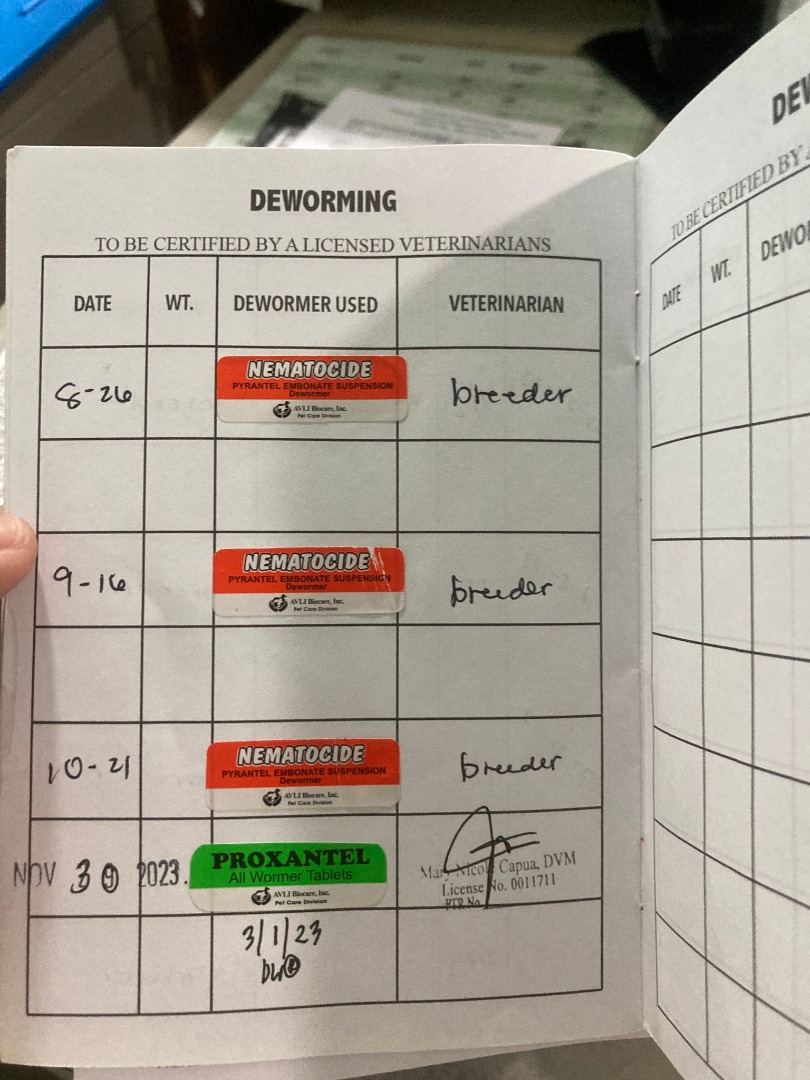 DEWORMING
TO BE CERTIFIED BY A LICENSED VETERINARIANS
DATE WT. DEWORMER USED VETERINARIAN
8-26 NEMATOCIDE breeder
PYRANTEL EMBONATE SUSPENSION
Dewormer
AVLI Biocare, Inc.
Pet Care Division
9-16 NEMATOCIDE breeder
PYRANTEL EMBONATE SUSPENSION
Dewormer
AVLI Biocare, Inc.
Pet Care Division
10-21 NEMATOCIDE breeder
PYRANTEL EMBONATE SUSPENSION
Dewormer
AVLI Biocare, Inc.
Pet Care Division
NOV 30 2023. PROXANTEL
All Wormer Tablets
AVLI Biocare, Inc.
Pet Care Division
Mary Nicole Capua, DVM
License No. 0011711
PTR No.
3/1/23
DEW
TO BE CERTIFIED BY A
DATE WT. DEWO